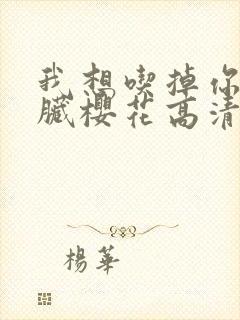 我想喫掉你
臟櫻花高清
楊華